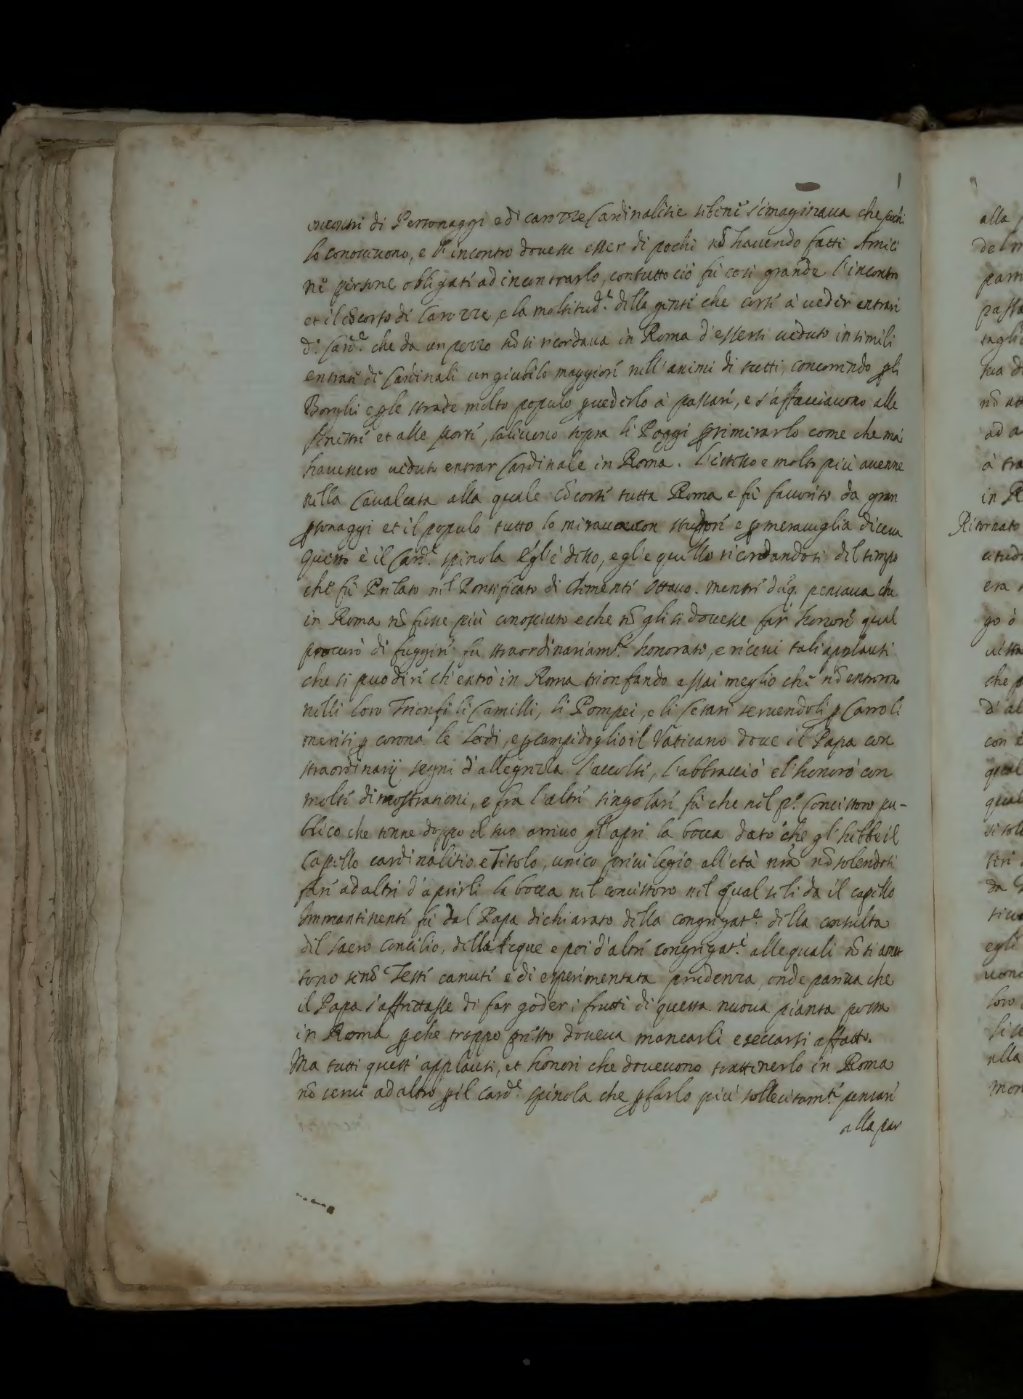 incontri di Personaggi e di carozze Cardinalitie se bene s'imaginaua che pochi
lo conosceuono, e l'incontro douesse esser di pochi nõ hauendo fatti Amici
ne persone obligati ad incontrarlo, con tutto ciò fu cosi grande l'incontro
et il cõcorso di Carozze, e la moltitud.e della genti che corse à ueder entrare
di Card.e che da un pezzo nõ si ricordaua in Roma d'essersi ueduto in simili
entrate di Cardinali un giubilo maggiore nell'animi di tutti, concorrendo p li
Borghi e p le strade molto populo p uederlo à passare, e s'affacciauono alle
finestre et alle porte, saliuono sopra li Poggi p rimirarlo come che mai
hauessero ueduto entrar Cardinale in Roma. L'istesso e molto più auenne
nella Caualcata alla quale cõcorse tutta Roma e fu fauorito da gran
psonaggi et il populo tutto lo miraua con stupore e p merauiglia diceua
questo è il Card.e Spinola egl'è desso, egl'è quello ricordandosi del tempo
che fu Prelato nel Pontificato di Clemente Ottauo. mentre dũq. pensaua che
in Roma nõ fusse più conosciuto e che nõ gli si douesse far honore qual
procurò di fuggire fu straordinariam.te honorato, e riceue tali applausi
che si può dire ch'entrò in Roma trionfando assai meglio che nõ entrorno
nelli loro Trionfi li Camilli, li Pompei, e li Cesari seruendoli p Carro li
meriti p corona le lodi, e p campidoglio il Vaticano doue il Papa con
straordinarij segni d'allegrezza l'accolse, l'abbracciò e l'honorò con
molte dimostrationi, e fra l'altre singolari fu che nel p.o Concistoro pu-
blico che tenne doppo il suo arriuo gl'aprì la bocca dato che gl'hebbe il
Capello cardinalitio e Titolo, unico priuilegio all'età nrã nõ solendosi
fare ad altri d'aprirli la bocca nel concistoro nel qual se li da il capello
Immantinente fu dal Papa dichiarato della congregat.e della consulta
del sacro Concilio, dell'Acque e poi d'altre congregat.i alle quali nõ si
sono senõ Teste canute e di esperimentata prudenza, onde pareua che
il Papa s'affrettasse di far goder i frutti di questa nuoua pianta posta
in Roma pche troppo presto doueua mancarli e seccarsi affatto.
Ma tutti questi applausi, et honori che doueuono trattenerlo in Roma
nõ serui ad altro p il Card.e Spinola che p farlo più sollecitam.te pensare
alla par